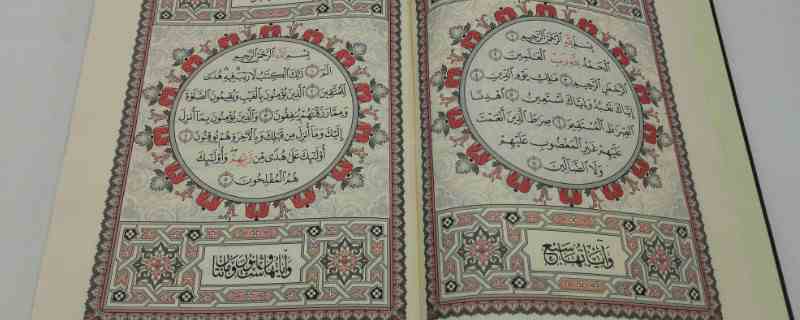 بِسْمِ اللَّهِ الرَّحْمَٰنِ الرَّحِيمِ ۝١
الْحَمْدُ لِلَّهِ رَبِّ الْعَالَمِينَ
۝٢ الرَّحْمَٰنِ الرَّحِيمِ ۝٣ مَالِكِ يَوْمِ الدِّينِ ۝٤
إِيَّاكَ نَعْبُدُ وَإِيَّاكَ نَسْتَعِينُ ۝٥ اهْدِنَا
الصِّرَاطَ الْمُسْتَقِيمَ ۝٦ صِرَاطَ الَّذِينَ أَنْعَمْتَ
عَلَيْهِمْ غَيْرِ الْمَغْضُوبِ عَلَيْهِمْ
وَلَا الضَّالِّينَ ۝٧
وَآيَاتُهَا سَبْعٌ
بِسْمِ اللَّهِ الرَّحْمَٰنِ الرَّحِيمِ
الم ۝١ ذَٰلِكَ الْكِتَابُ لَا رَيْبَ فِيهِ هُدًى
لِّلْمُتَّقِينَ ۝٢ الَّذِينَ يُؤْمِنُونَ بِالْغَيْبِ وَيُقِيمُونَ الصَّلَاةَ
وَمِمَّا رَزَقْنَاهُمْ يُنفِقُونَ ۝٣ وَالَّذِينَ يُؤْمِنُونَ بِمَا أُنزِلَ
إِلَيْكَ وَمَا أُنزِلَ مِن قَبْلِكَ وَبِالْآخِرَةِ هُمْ يُوقِنُونَ ۝٤
أُولَٰئِكَ عَلَىٰ هُدًى مِّن رَّبِّهِمْ وَأُولَٰئِكَ
هُمُ الْمُفْلِحُونَ ۝٥
وَآيَاتُهَا سِتٌّ وَثَمَانُونَ وَمِائَتَانِ